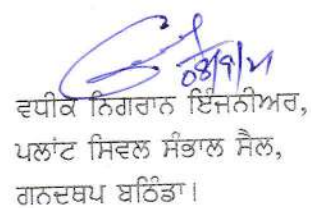 08/9/21
ਵਧੀਕ ਨਿਗਰਾਨ ਇੰਜਨੀਅਰ,
ਪਲਾਂਟ ਸਿਵਲ ਸੰਭਾਲ ਸੈਲ,
ਗਨਦਥਪ ਬਠਿੰਡਾ।